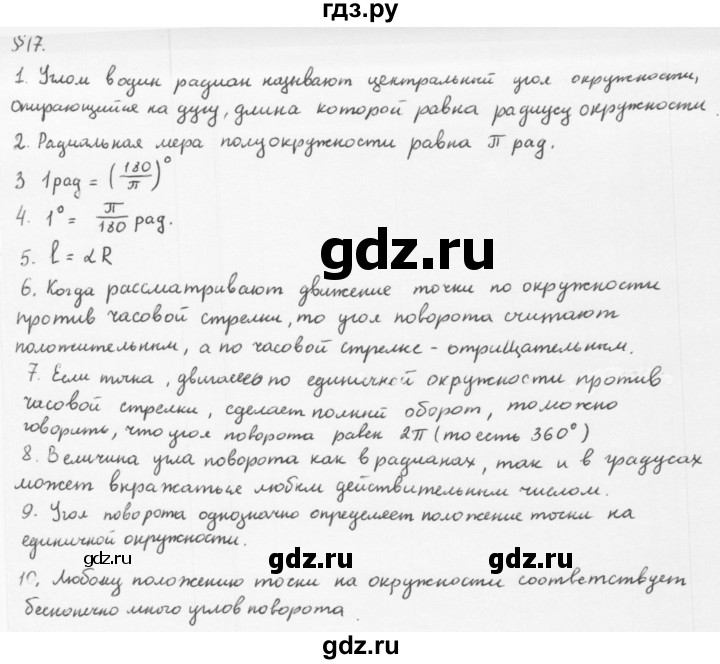 гдз.ру
§17.
1. Углом в один радиан называют центральный угол окружности,
опирающийся на дугу, длина которой равна радиусу окружности.
2. Радиальная мера полуокружности равна π рад.
3 1рад = (180/π)°
4. 1° = π/180 рад.
gdz.ru
5. l = αR
6. Когда рассматривают движение точки по окружности
против часовой стрелки, то угол поворота считают
положительным, а по часовой стрелке - отрицательным.
7. Если точка, двигаясь по единичной окружности против
часовой стрелки, сделает полный оборот, то можно
говорить, что угол поворота равен 2π (то есть 360°)
8. Величина угла поворота как в радианах, так и в градусах
может выражаться любым действительным числом.
9. Угол поворота однозначно определяет положение точки на
единичной окружности.
gdz.ru
gdz.ru
10. Любому положению точки на окружности соответствует
бесконечно много углов поворота.
gdz.ru